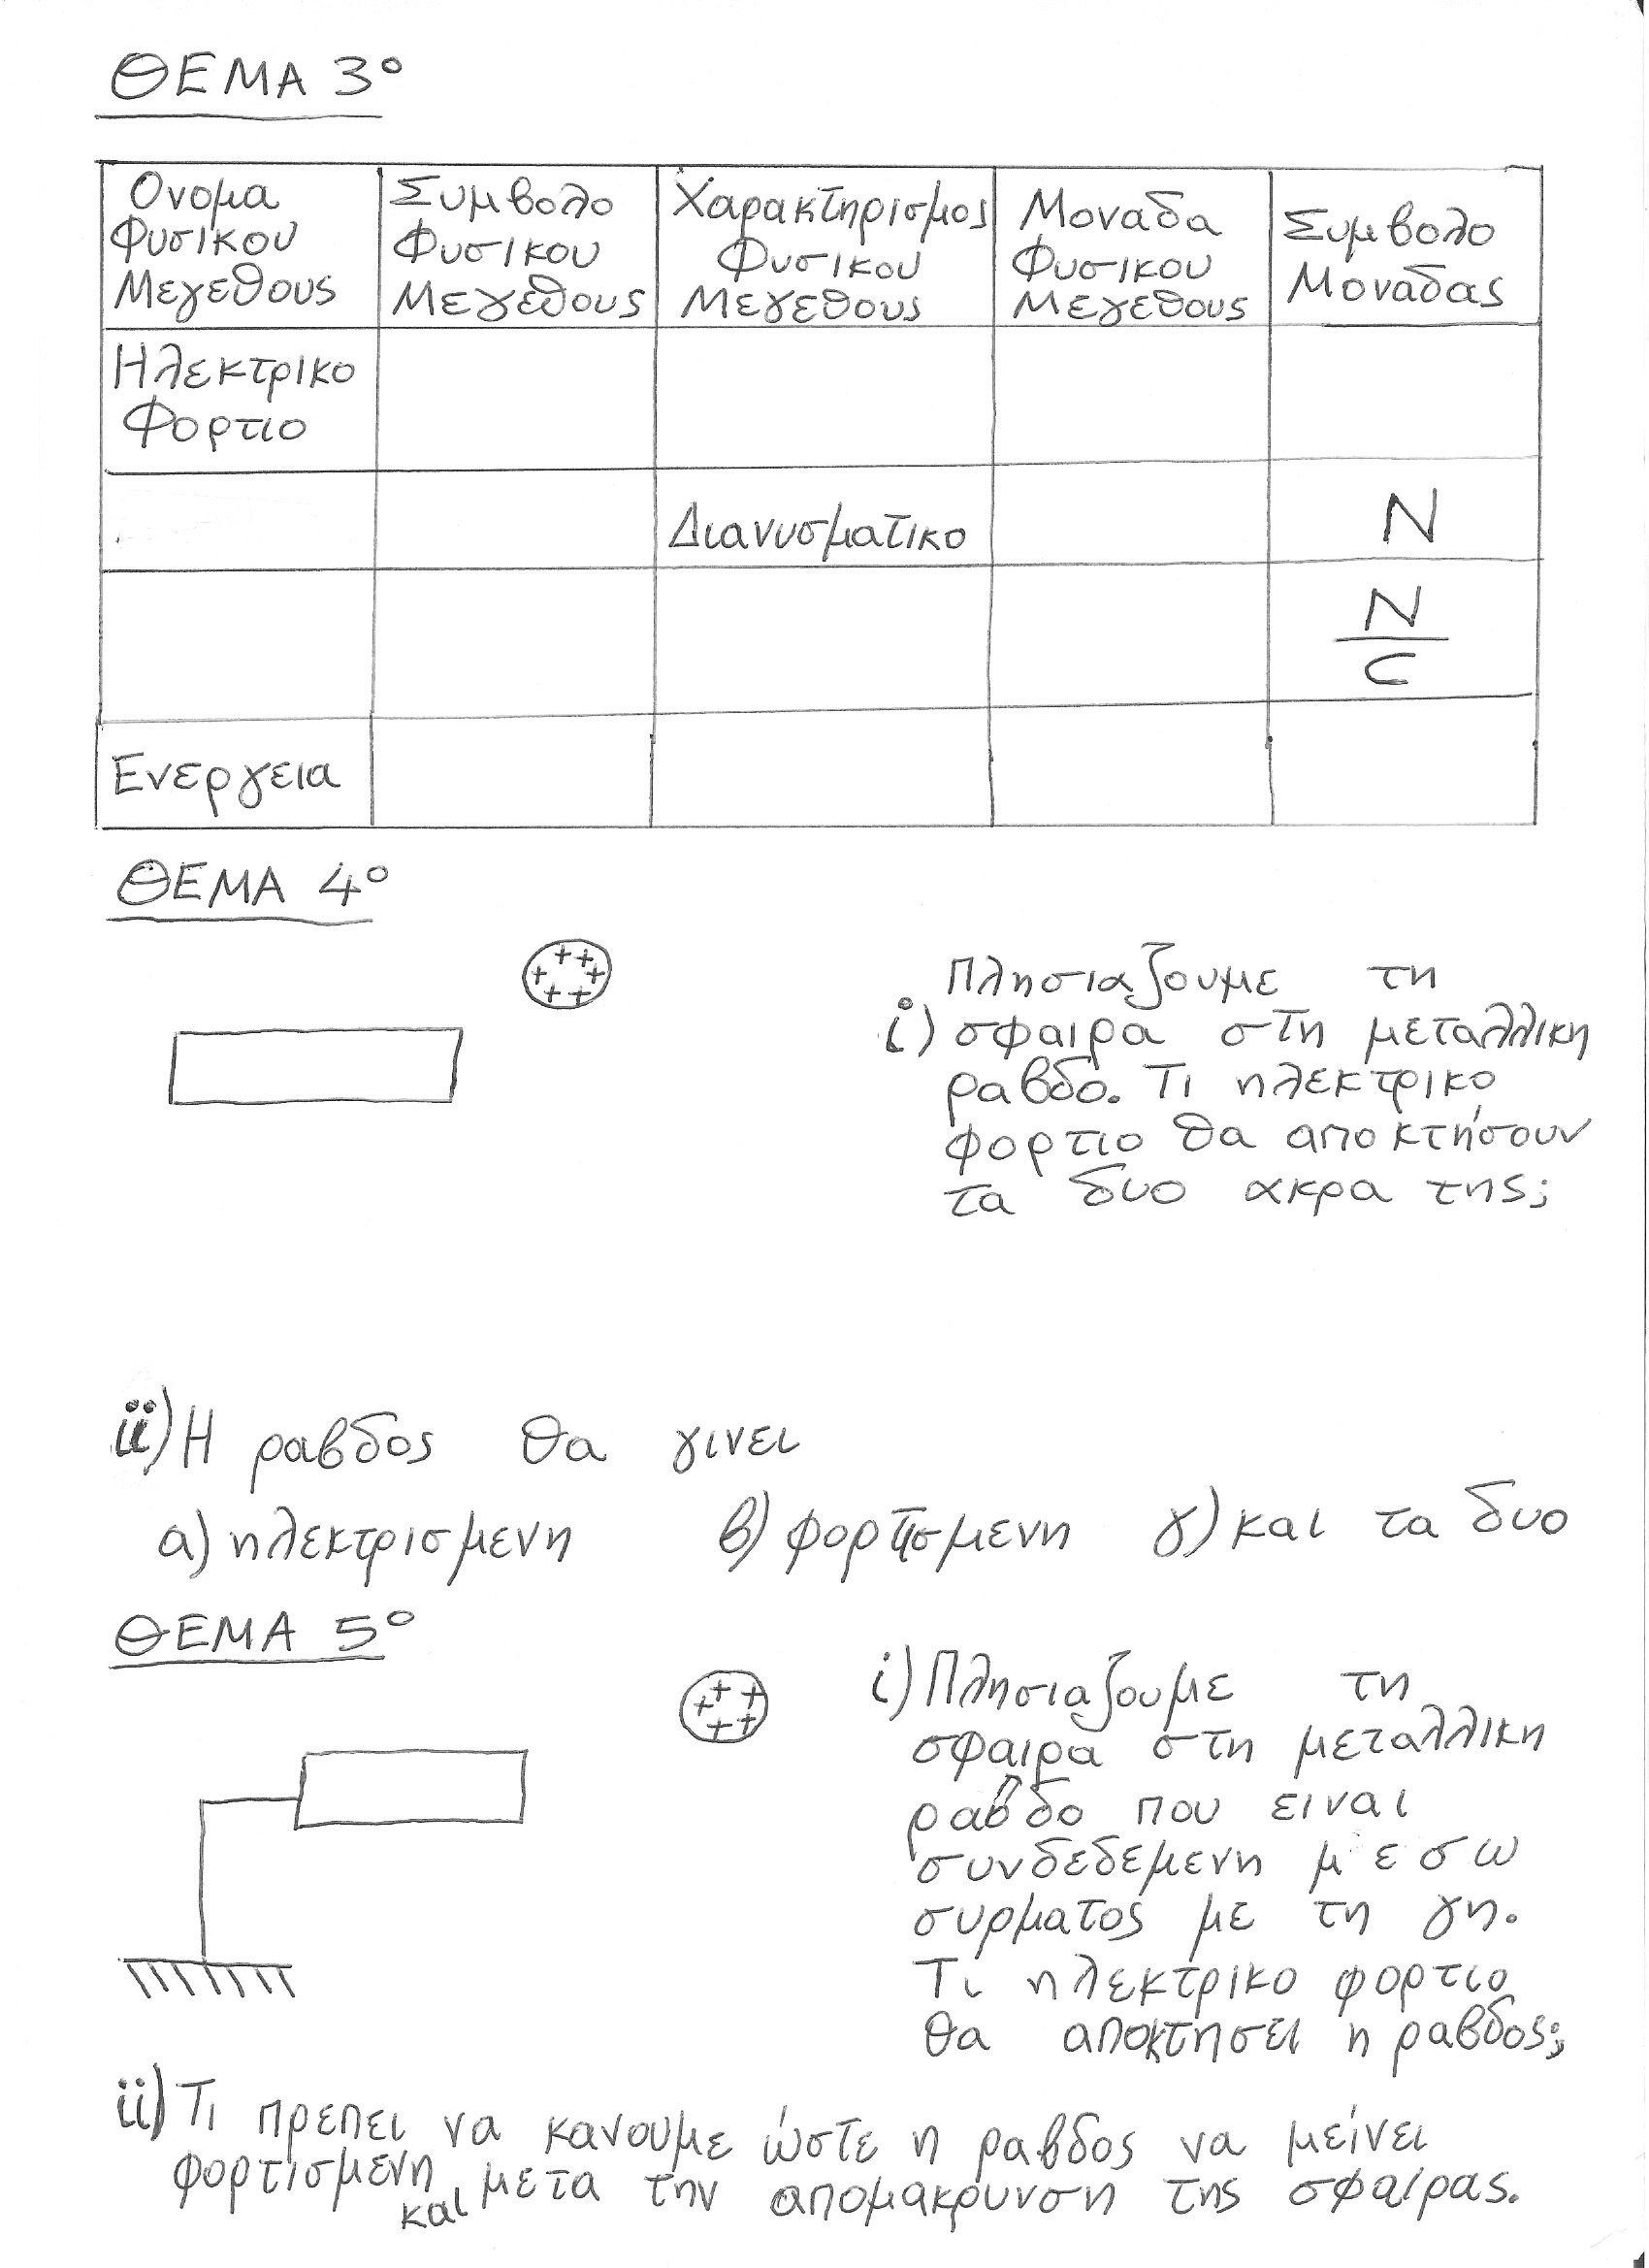 ΘΕΜΑ 3º
Ονομα Φυσικου Μεγεθους
Συμβολο Φυσικου Μεγεθους
Χαρακτηρισμος Φυσικου Μεγεθους
Μοναδα Φυσικου Μεγεθους
Συμβολο Μοναδας
Ηλεκτρικο Φορτιο
Διανυσματικο
N
N
C
Ενεργεια
ΘΕΜΑ 4º
+ + + + + +
Πλησιαζουμε τη
i) σφαιρα στη μεταλλικη
ραβδο. Τι ηλεκτρικο
φορτιο θα αποκτήσουν
τα δυο ακρα της;
ii) Η ραβδος θα γινει
α) ηλεκτρισμενη β) φορτισμενη γ) και τα δυο
ΘΕΜΑ 5º
+ + + + +
i) Πλησιαζουμε τη
σφαιρα στη μεταλλικη
ραβδο που ειναι
συνδεδεμενη μεσω
συρματος με τη γη.
Τι ηλεκτρικο φορτιο
θα αποκτησει η ραβδος;
ii) Τι πρεπει να κανουμε ώστε η ραβδος να μείνει
φορτισμενη και μετα την απομακρυνση της σφαίρας.